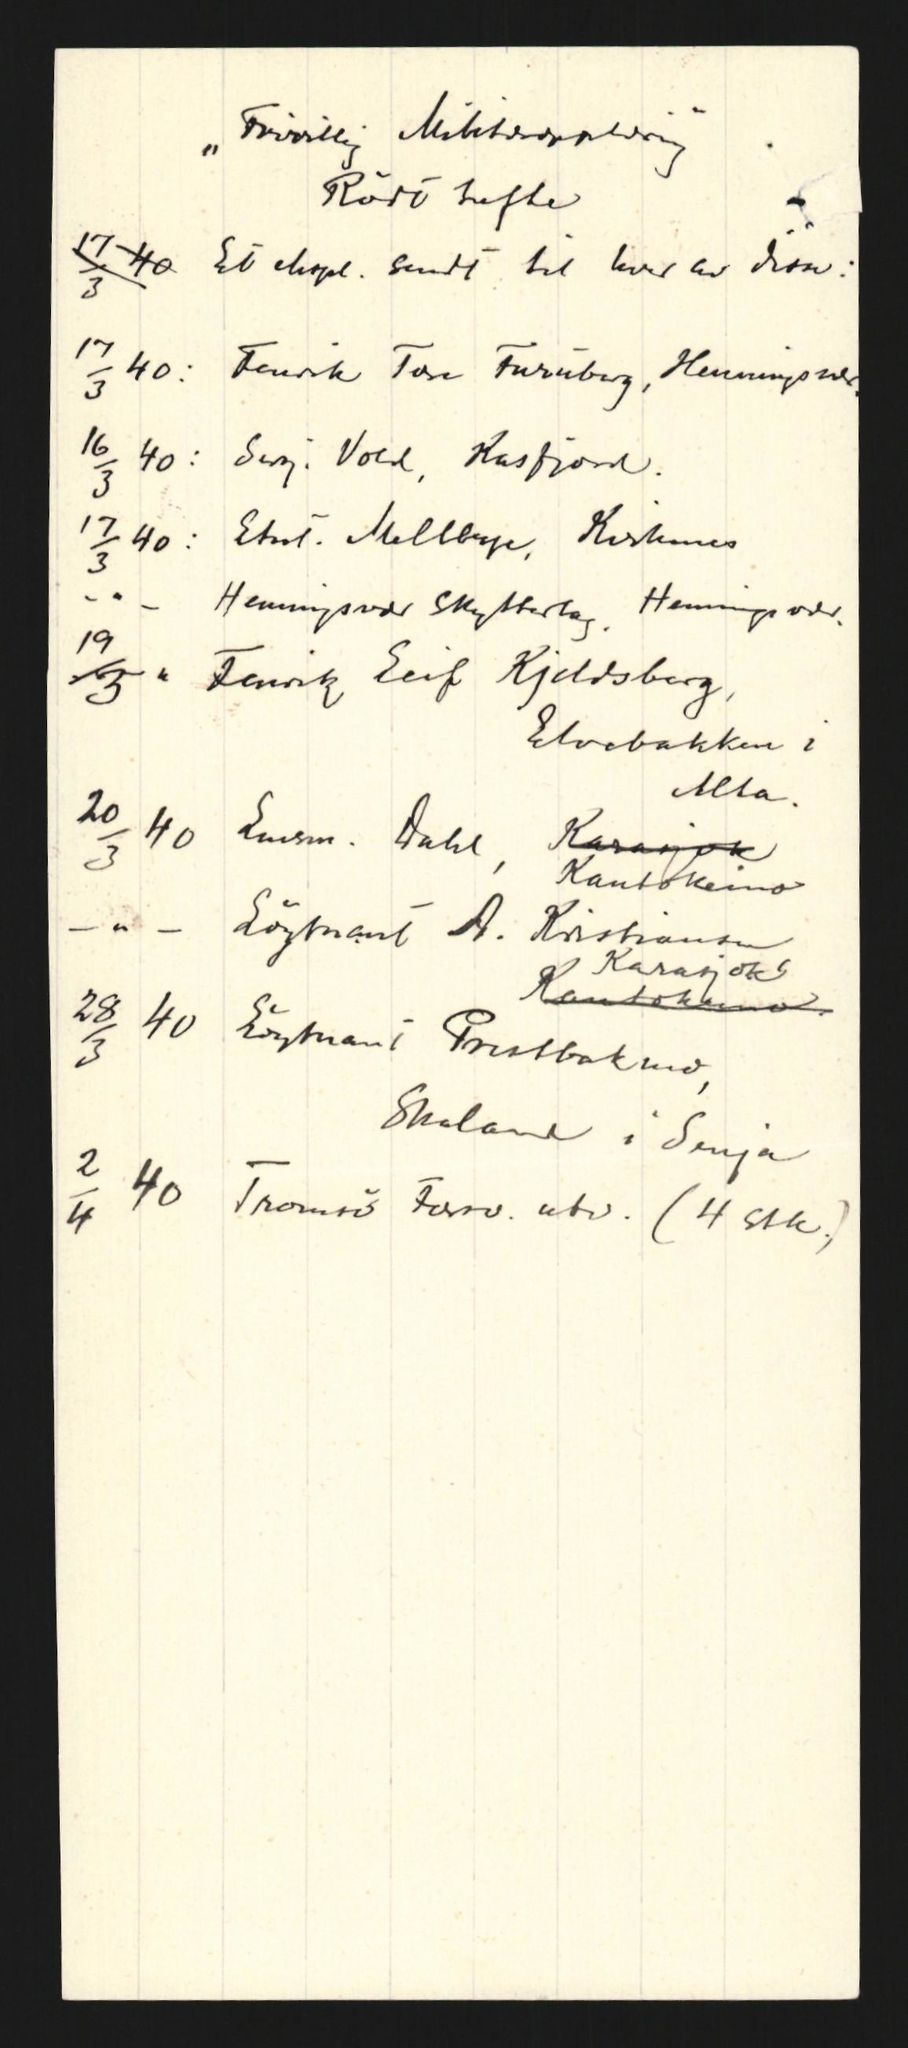 „Frivillig Militæropplæring"
Rödt hefte
17/3 40 Et ekspl. sendt til hver av disse:
17/3 40: Fenrik Tore Furuberg, Henningsvær.
16/3 40: Serj. Vold, Kasfjord.
17/3 40: Mellbye, Kirkenes
-"- Henningsvær Skytterlag, Henningsvær.
19/3 " Fenrik Leif Kjeldsberg,
Elvebakken i
Alta.
20/3 40 Lensm. Dahl, Karasjok
Kautokeino
-"- Löytnant A. Kristiansen
Karasjok
Kautokeino.
28/3 40 Löytnant Prestbakmo,
Skaland i Senja
2/4 40 Tromsö Forsv. utv. (4 stk.)